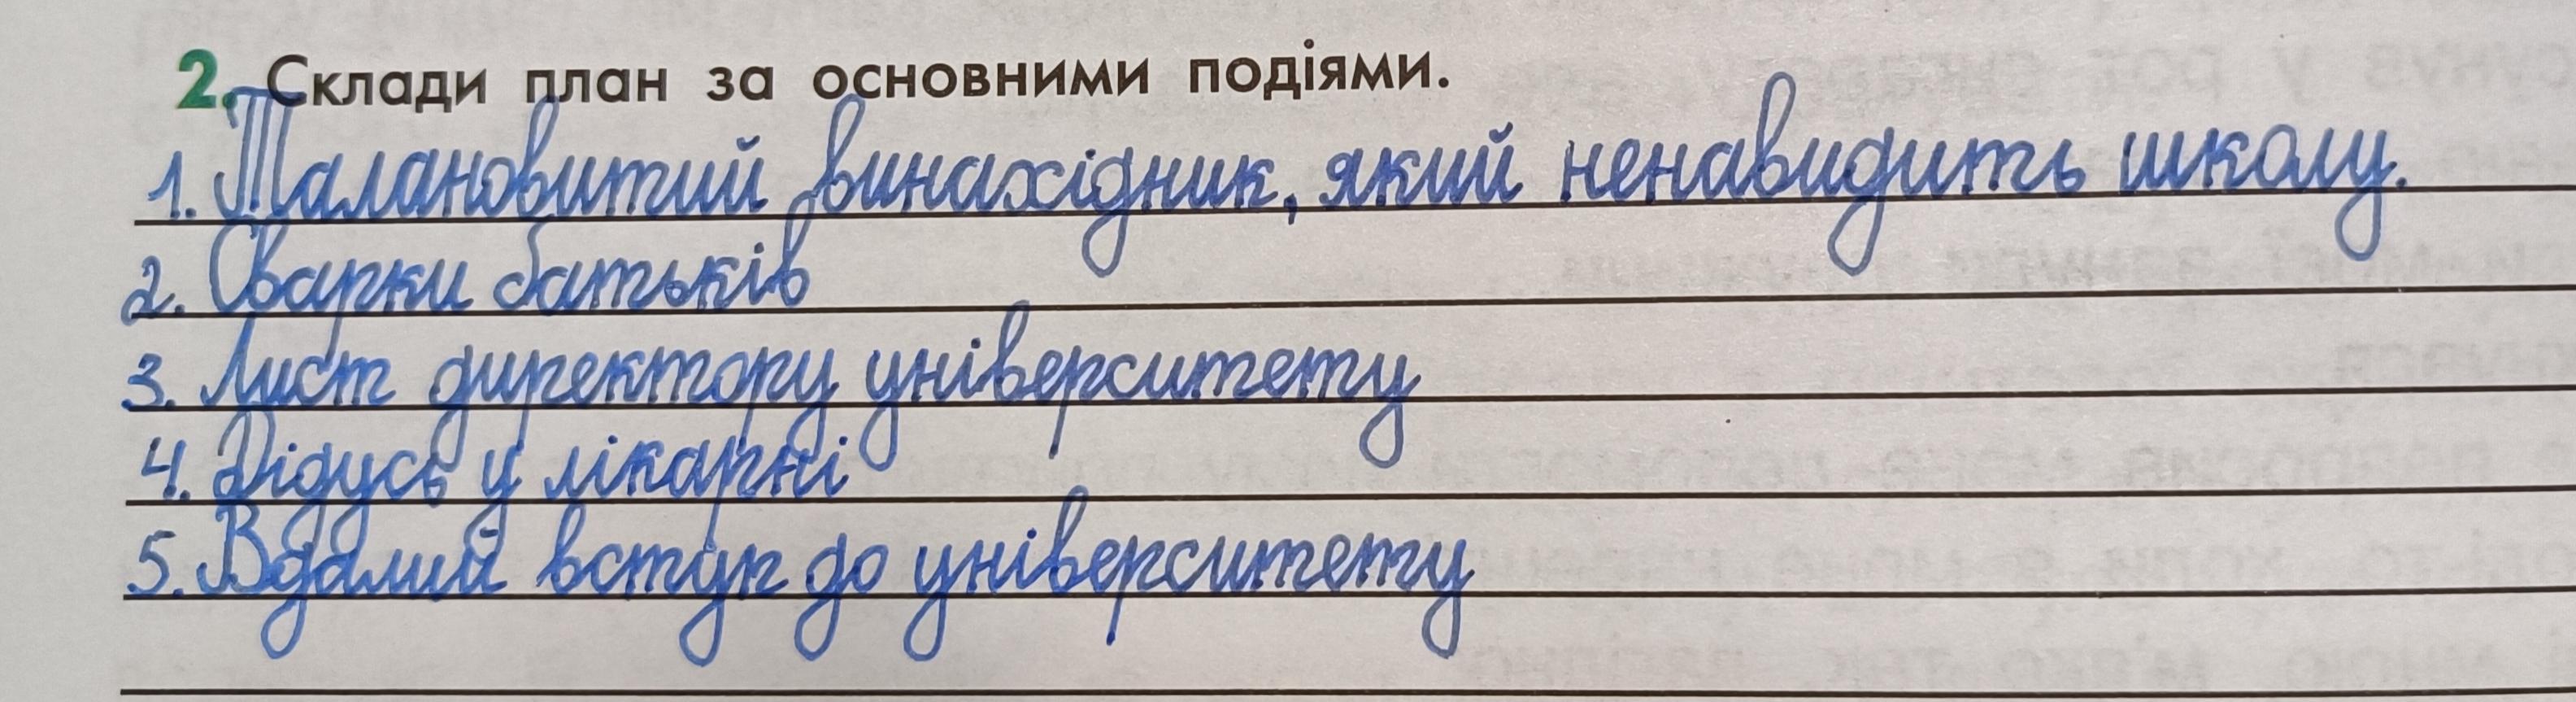 2. Склади план за основними подіями.
1. Талановитий винахідник, який ненавидить школу.
2. Сварки батьків
3. Лист директору університету
4. Дідусь у лікарні
5. Вдалий вступ до університету